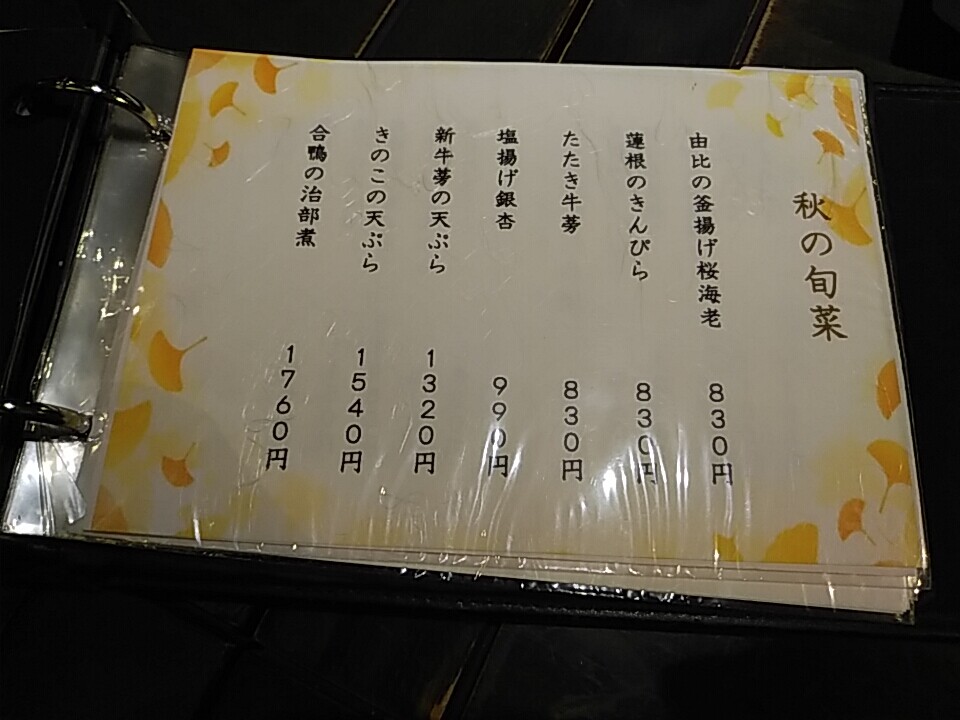 秋の旬菜
由比の釜揚げ桜海老 830円
蓮根のきんぴら 830円
たたき牛蒡 830円
塩揚げ銀杏 990円
新牛蒡の天ぷら 1320円
きのこの天ぷら 1540円
合鴨の治部煮 1760円